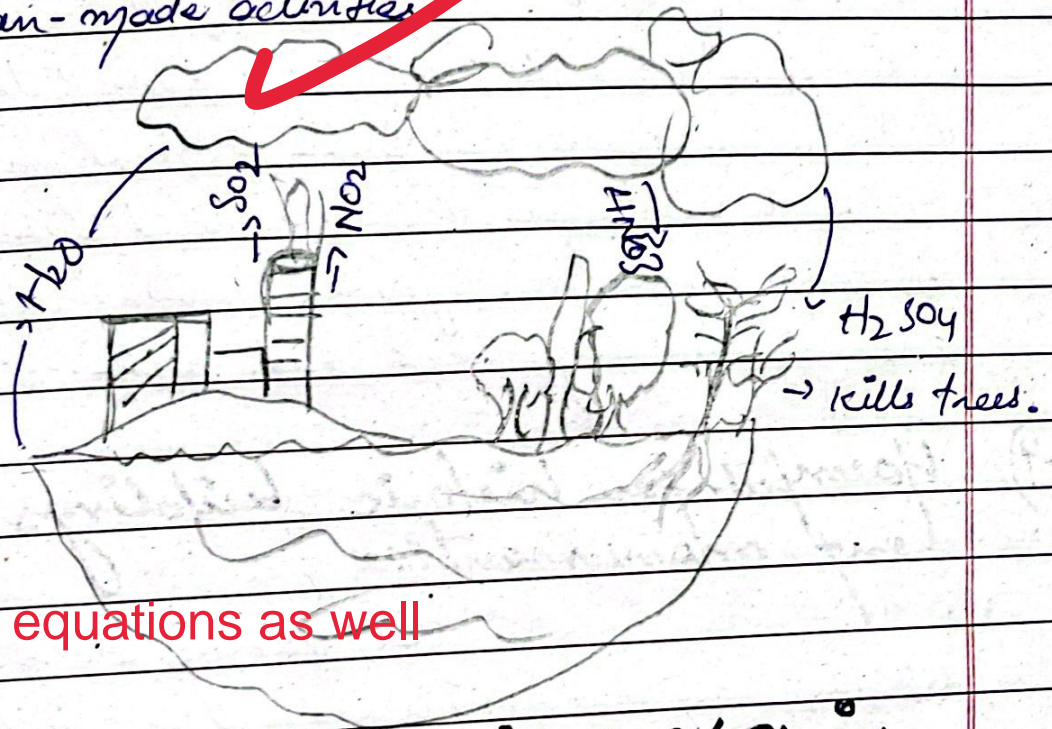 man-made activities
SO2
NO2
HNO3
H2O
H2SO4
→ Kills trees.
equations as well